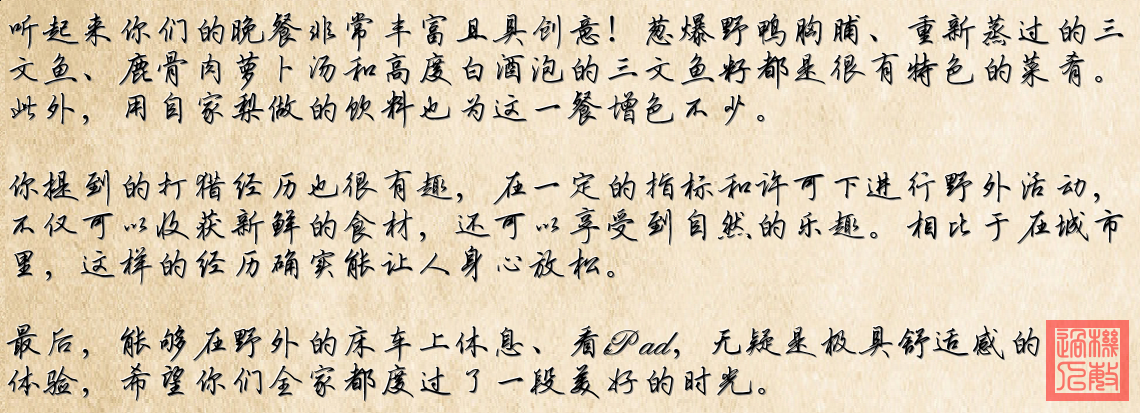 听起来你们的晚餐非常丰富且具创意！葱爆野鸭胸脯、重新蒸过的三
文鱼、鹿骨肉萝卜汤和高度白酒泡的三文鱼籽都是很有特色的菜肴。
此外，用自家梨做的饮料也为这一餐增色不少。
你提到的打猎经历也很有趣，在一定的指标和许可下进行野外活动，
不仅可以收获新鲜的食材，还可以享受到自然的乐趣。相比于在城市
里，这样的经历确实能让人身心放松。
最后，能够在野外的床车上休息、看Pad，无疑是极具舒适感的
体验，希望你们全家都度过了一段美好的时光。